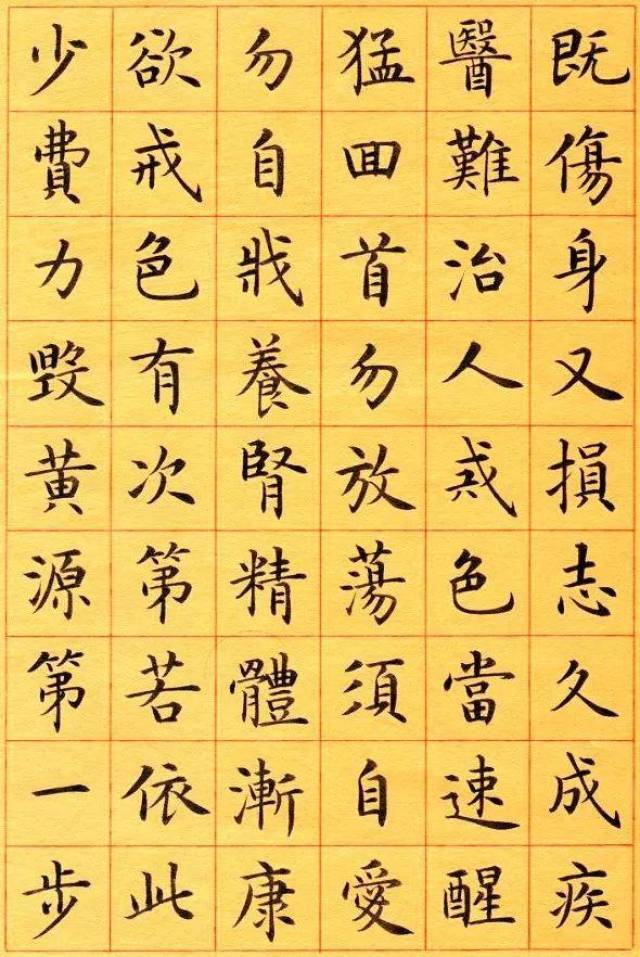 既傷身又損志久成疾
醫難治人惑色當速醒
猛囬首勿放蕩須自愛
勿自戕養腎精體漸康
欲戒色有次第若依此
少費力毀黄源第一步